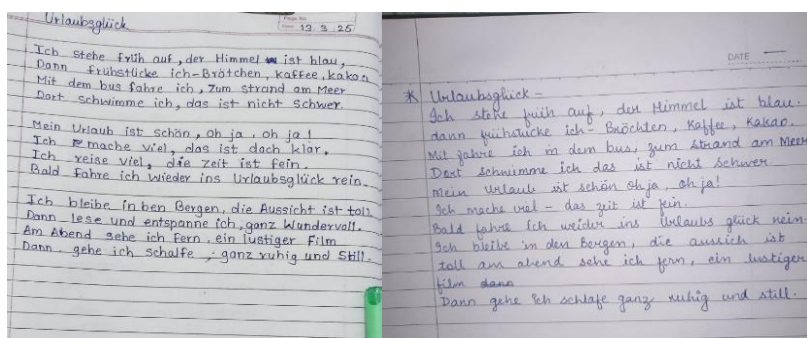 Urlaubsglück
Page No.
Date 13 3 25
Ich stehe früh auf, der Himmel ist blau,
Dann frühstücke ich-Brötchen, kaffee, kakao
Mit dem bus fahre ich, zum strand am Meer
Dort schwimme ich, das ist nicht Schwer.
Mein Urlaub ist schön, oh ja, oh ja!
Ich mache viel, das ist doch klar,
Ich reise viel, die zeit ist fein.
Bald fahre ich wieder ins Urlaubsglück rein.
Ich bleibe in ben Bergen, die Aussicht ist toll
Dann lese und entspanne ich, ganz Wundervoll.
Am Abend sehe ich Fern, ein lustiger Film
Dann gehe ich schalfe, ganz ruhig und Still.
DATE
* Urlaubsglück -
Ich stehe früh auf, der Himmel ist blau.
dann frühstücke ich - Bröchten, Kaffee, Kakao.
Mit fahre ich in dem bus, zum strand am Meer
Dort schwimme ich das ist nicht schwer.
Mein Urlaub ist schön oh ja, oh ja!
Ich mache viel - das zeit ist fein.
Bald fahre Ich weider ins Urlaubs glück rein.
Ich bleibe in den Bergen, die aussich ist
toll am abend sehe ich fern, ein lustiger
film dann
Dann gehe ich schlafe ganz ruhig und still.